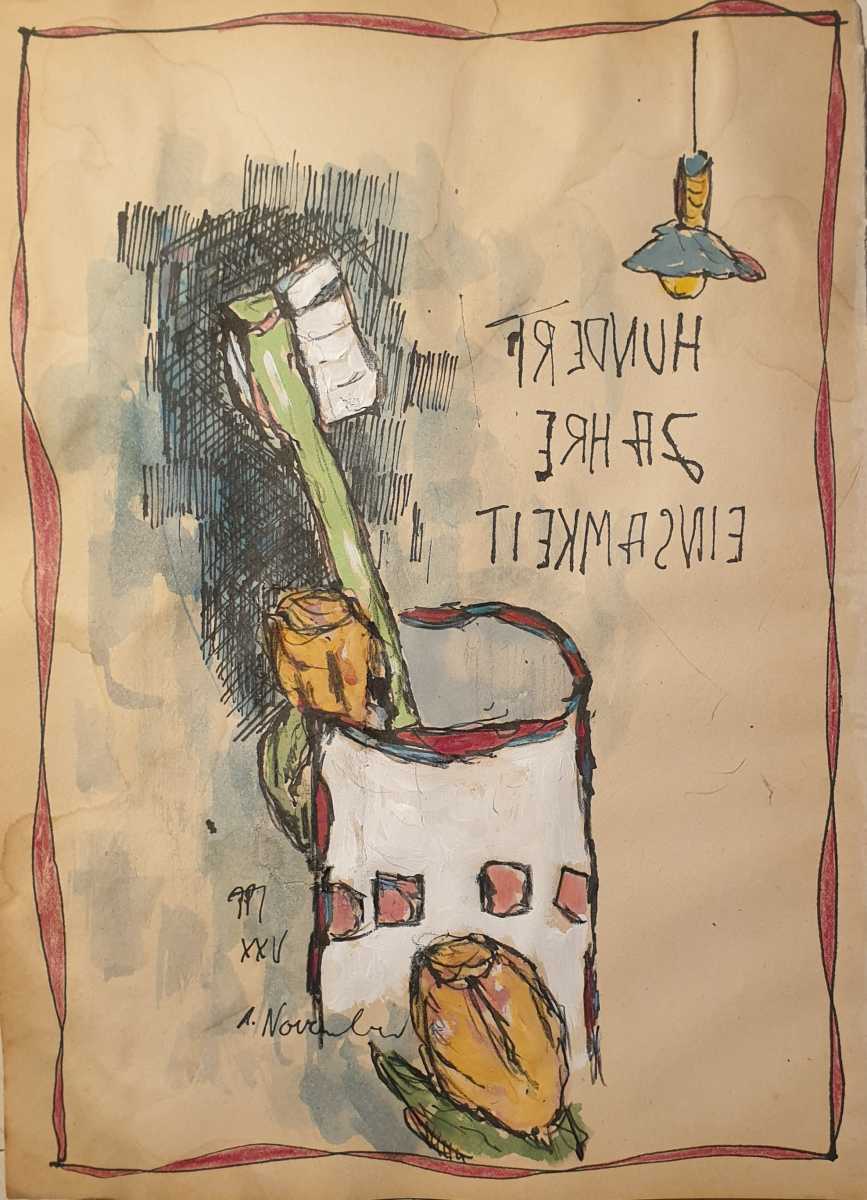 HUNDERT
JAHRE
EINSAMKEIT
XXV
1. November